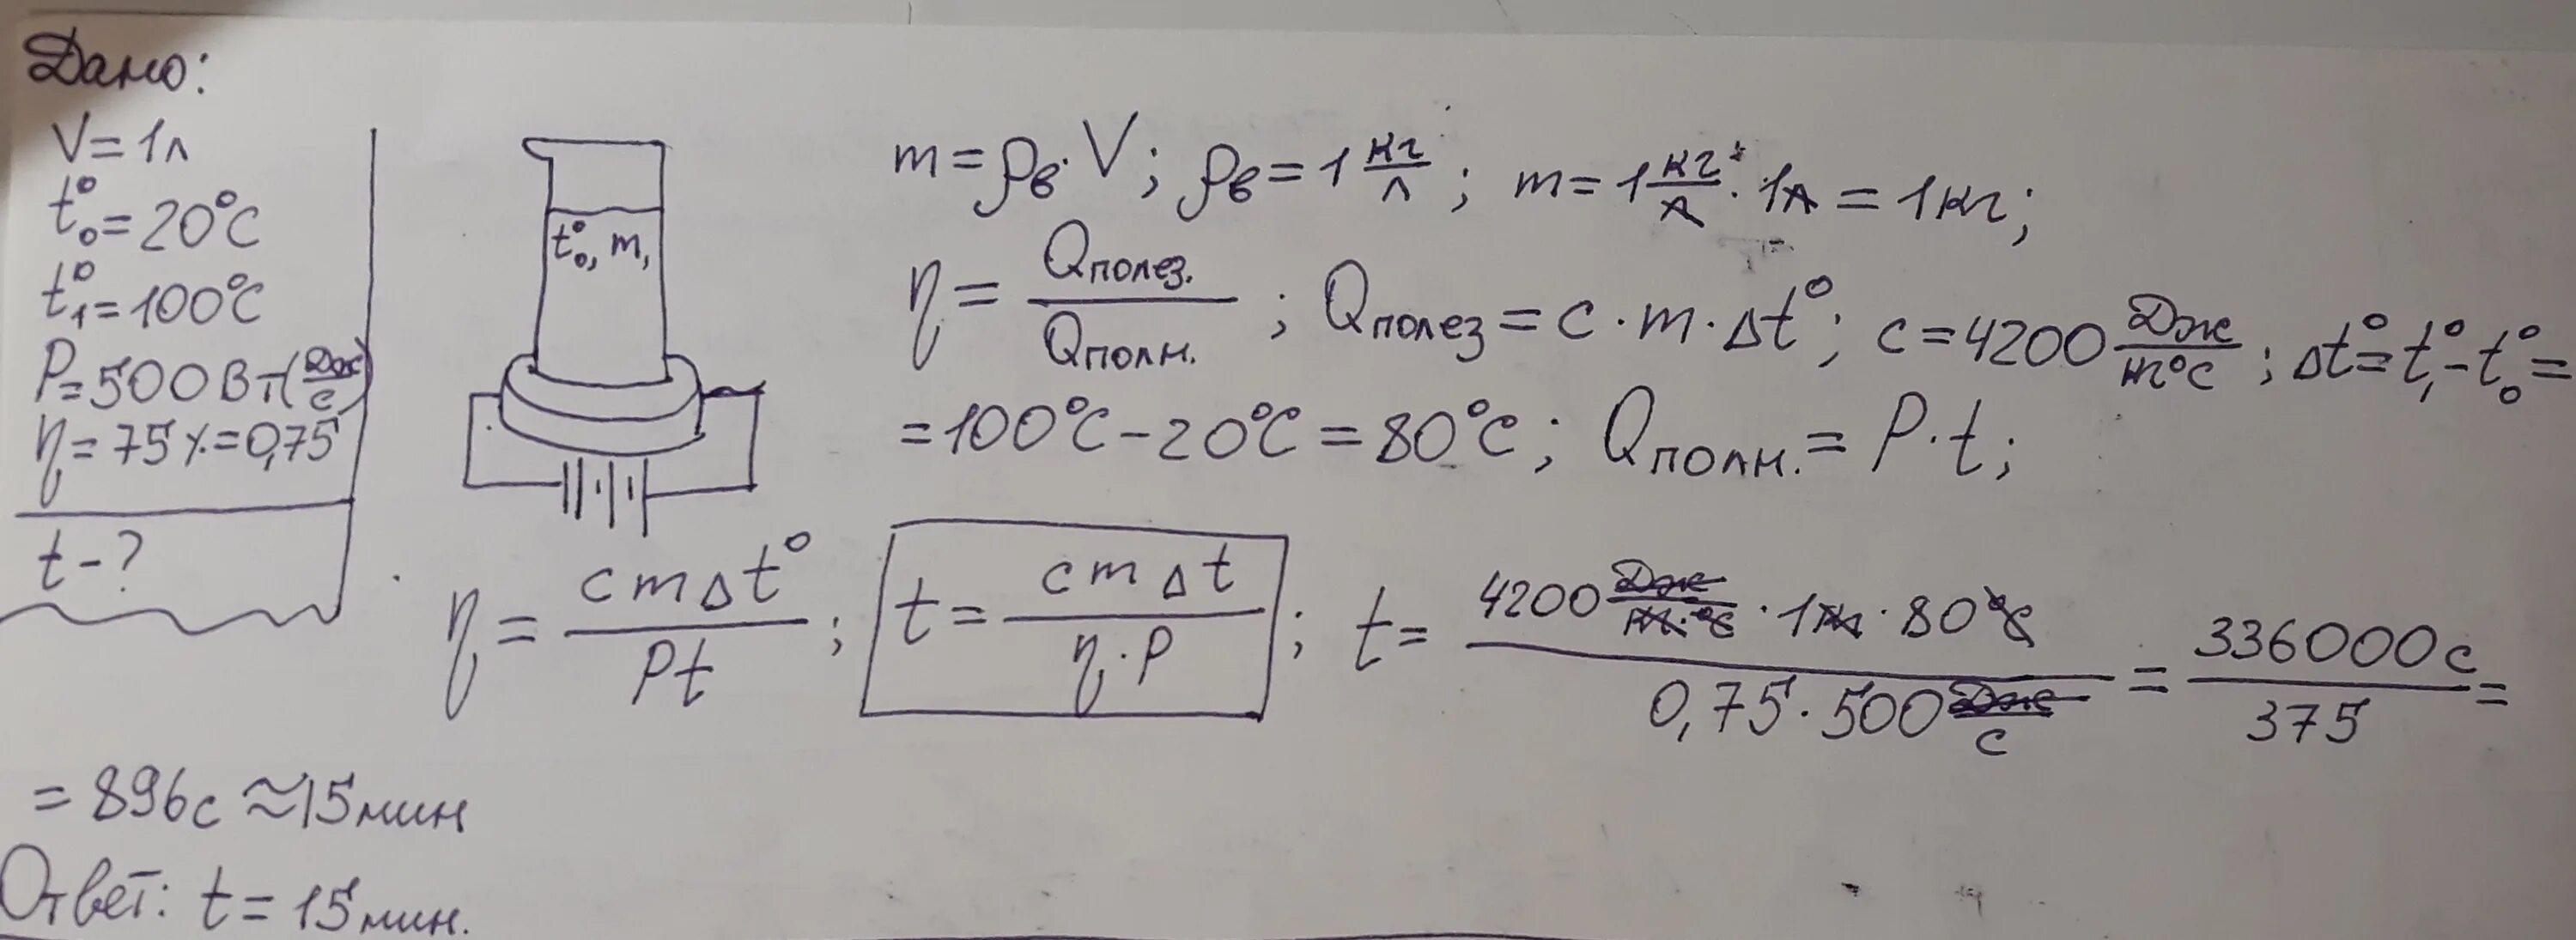 Дано:
V = 1л
t°₀ = 20°C
t°₁ = 100°C
P = 500 Вт (Дж/с)
η = 75% = 0,75
t - ?
t°₀, m,
m = ρв · V; ρв = 1 кг/л; m = 1 кг/л · 1л = 1кг;
η = Qполез. / Qполн. ; Qполез = c · m · Δt°; c = 4200 Дж/кг°C ; Δt° = t°₁ - t°₀ =
= 100°C - 20°C = 80°C; Qполн. = P · t;
η = cmΔt° / Pt ; t = cmΔt / η · P ; t = 4200 Дж/кг·°C · 1кг · 80°C / 0,75 · 500 Дж/с = 336000с / 375 =
= 896с ≈ 15мин
Ответ: t = 15мин.